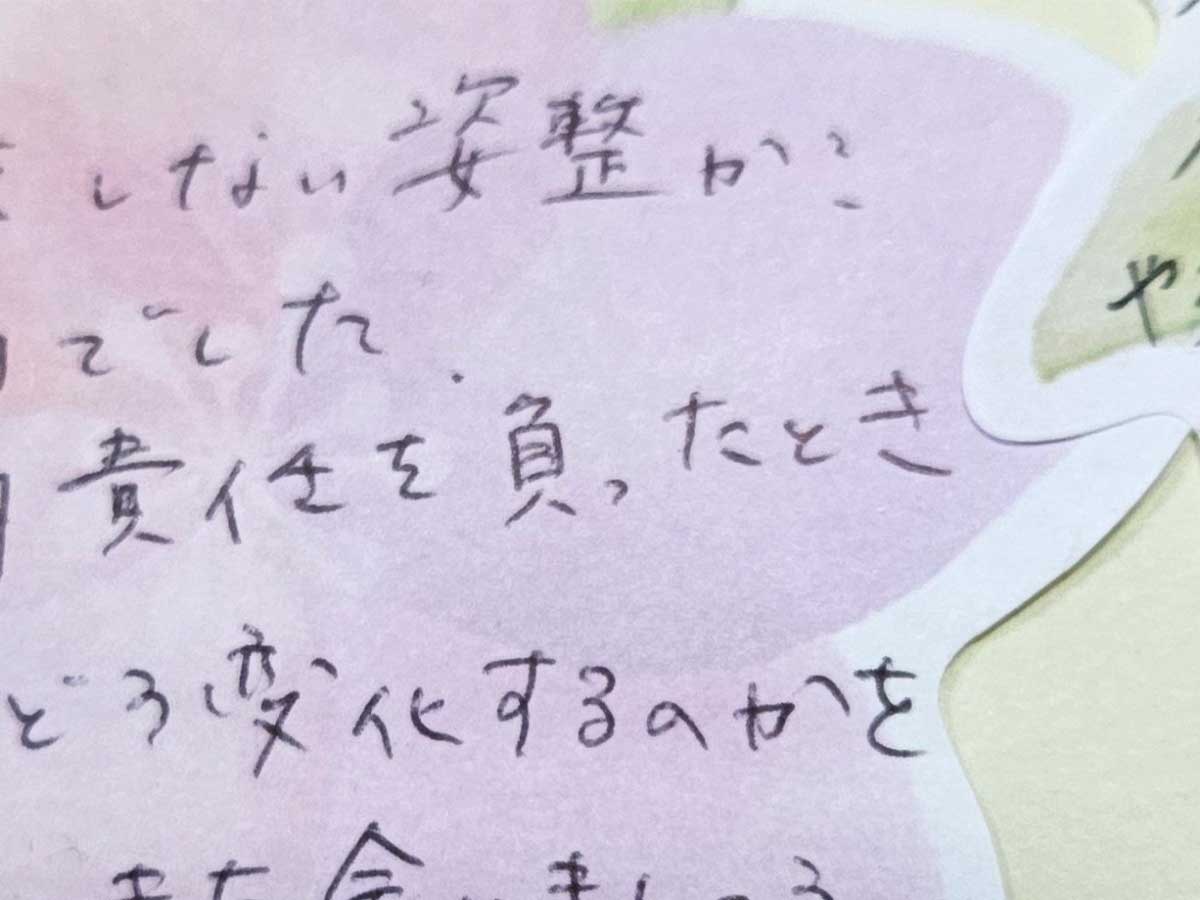 しない姿整がこ
でした.
責任を負ったとき
どう変化するのかを
また会いましょう
や